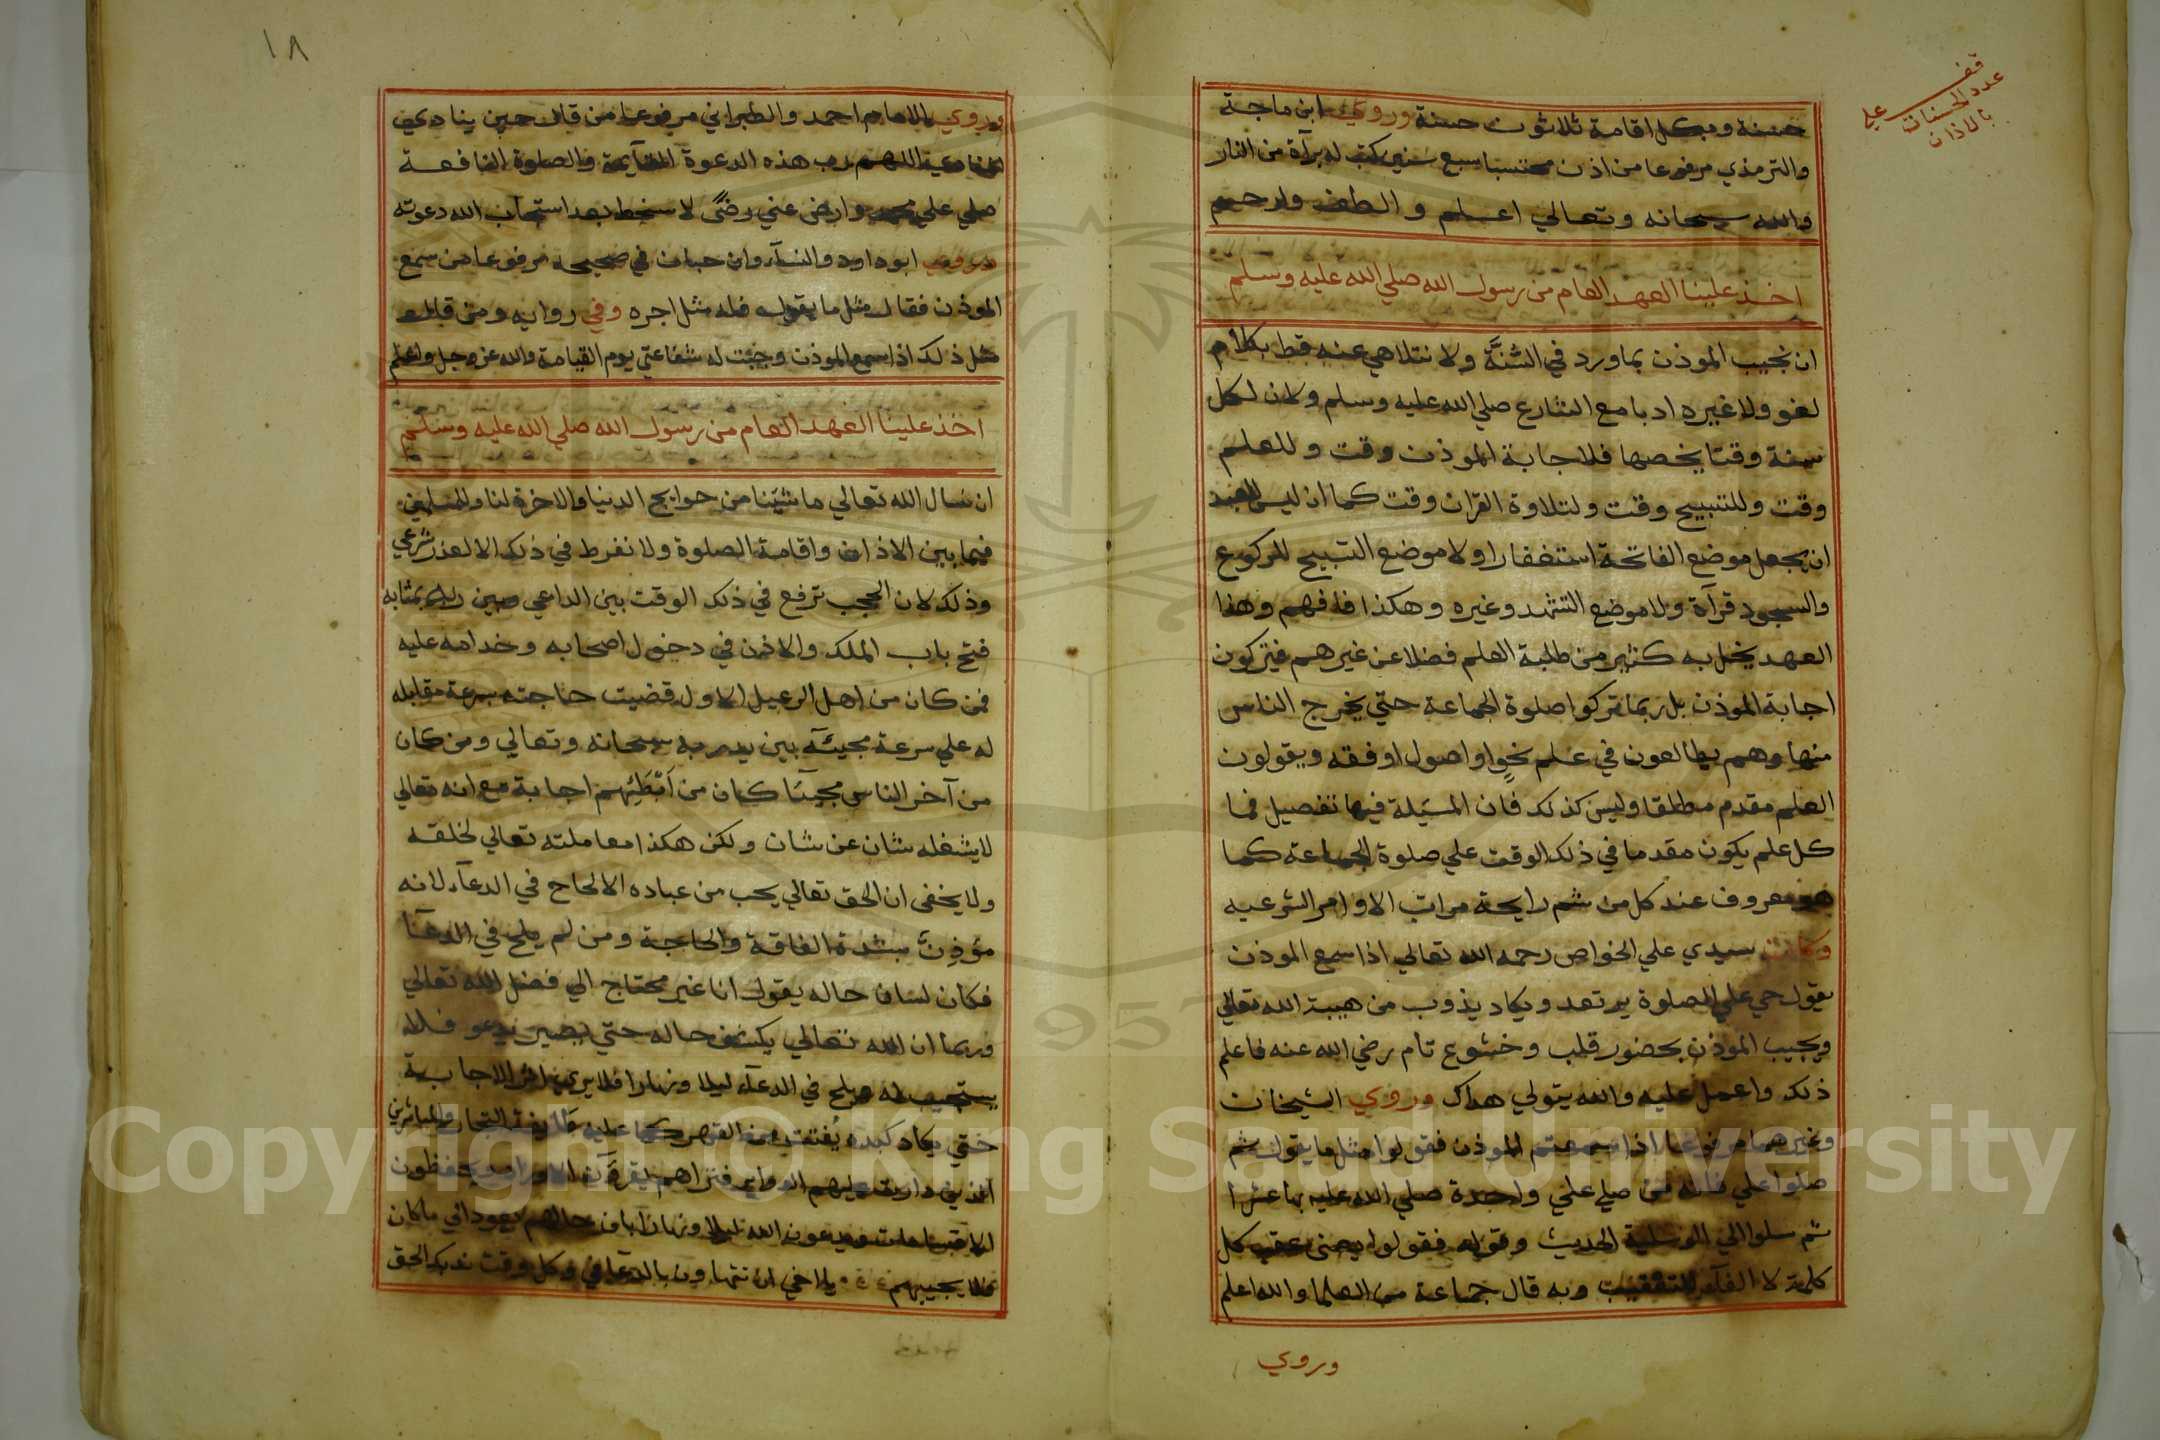 قف علي
عدد الحسنات
بالاذان
حسنة وبكل اقامة ثلاثون حسنة وروي ابن ماجة
والترمذي مرفوعا من اذن محتسبا سبع سنين كتب له برآة من النار
والله سبحانه وتعالي اعلم والطف وارحم
اخذ علينا العهد العام من رسول الله صلي الله عليه وسلم
ان نجيب الموذن بما ورد في السُّنَّة ولا نتلاهي عنه قط بكلام
لغو ولا غيره ادبا مع الشارع صلي الله عليه وسلم ولان لكل
سنة وقتا يخصها فلاجابة الموذن وقت وللعلم
وقت وللتسبيح وقت ولتلاوة القران وقت كما ان ليس للعبد
ان يجعل موضع الفاتحة استغفارا ولا موضع التسبيح للركوع
والسجود قرآة ولا موضع التشهد وغيره وهكذا فافهم وهذا
العهد يخل به كثير من طلبة العلم فضلا عن غيرهم فيتركون
اجابة الموذن بل ربما تركوا صلوة الجماعة حتي يخرج الناس
منها وهم يطالعون في علم نحوٍ او اصول او فقه ويقولون
العلم مقدم مطلقا وليس كذلك فان المسئلة فيها تفصيل فما
كل علم يكون مقدما في ذلك الوقت علي صلوة الجماعة كما
هو معروف عند كل من شم رايحة مراتب الاوامر الشرعيه
وكان سيدي علي الخواص رحمه الله تعالي اذا سمع الموذن
يقول حي علي الصلوة يرتعد ويكاد يذوب من هيبة الله تعالي
ويجيب الموذن بحضور قلب وخشوع تام رضي الله عنه فاعلم
ذلك واعمل عليه والله يتولي هداك وروي الشيخان
وغيرهما مرفوعا اذا سمعتم الموذن فقولوا مثل ما يقول ثم
صلوا علي فانه من صلي علي واحدة صلي الله عليه بها عشرا
ثم سلوا الي الوسلية الحديث وقوله فقولوا يعني عقب كل
كلمة لا الفآء للتعقيب وبه قال جماعة من العلما والله اعلم
وروي
١٨
وروي الامام احمد والطبراني مرفوعا من قال حين ينادي
المنادي اللهم رب هذه الدعوة القآيمة والصلوة النافعة
صلي علي محمد وارض عني رضًي لا سخط بعد استجاب الله دعوته
وروي ابو داود والنسآء وابن حبان في صحيحه مرفوعا من سمع
الموذن فقال مثل ما يقول فله مثل اجره وفي رواية ومن قال
مثل ذلك اذا سمع الموذن وجبت له شفاعتي يوم القيامة والله عز وجل واعلم
اخذ علينا العهد العام من رسول الله صلي الله عليه وسلم
ان نسال الله تعالي ما شئنا من حوايج الدنيا والاخرة لنا وللمسلمين
فيما بين الاذان واقامة الصلوة ولا نفرط في ذلك الا لعذر شرعي
وذلك لان الحجب ترفع في ذلك الوقت بين الداعي وبين ربه بمثابه
فتح باب الملك والاذن في دخول اصحابه وخدامه عليه
فمن كان من اهل الرعيل الاول قضيت حاجته بسرعة مقابله
له علي سرعة مجيئه بين يديه سبحانه وتعالي ومن كان
من آخر الناس مجيئا كان من ابطئهم اجابة مع انه تعالي
لا يشغله شان عن شان ولكن هكذا معاملته تعالي لخلقه
ولا يخفي ان الحق تعالي يحب من عباده الالحاح في الدعآء لانه
مؤذن بشدة الفاقة والحاجة ومن لم يلح في الدعآ
فكان لسان حاله يقول انا غير محتاج الي فضل الله تعالي
وربما ان الله تعالي يكشف حاله حتي يصير يدعو فلا
يستجيب له ويلح في الدعآء ليلا ونهارا فلا يري اثر الاجابة
حتي يكاد كبده يُفتت من القهر كما عليه طايفة التجار والمباشرين
الذين دارت عليهم الدواير فتراهم يقرؤن الاوراد ويحفظون
الاقسامات ويدعون الله ليلا ونهارا بان حالهم يعود الي ما كان
فلا يجيبهم فاياك يا اخي ان تتهاون بالدعآ في كل وقت ندبك الحق